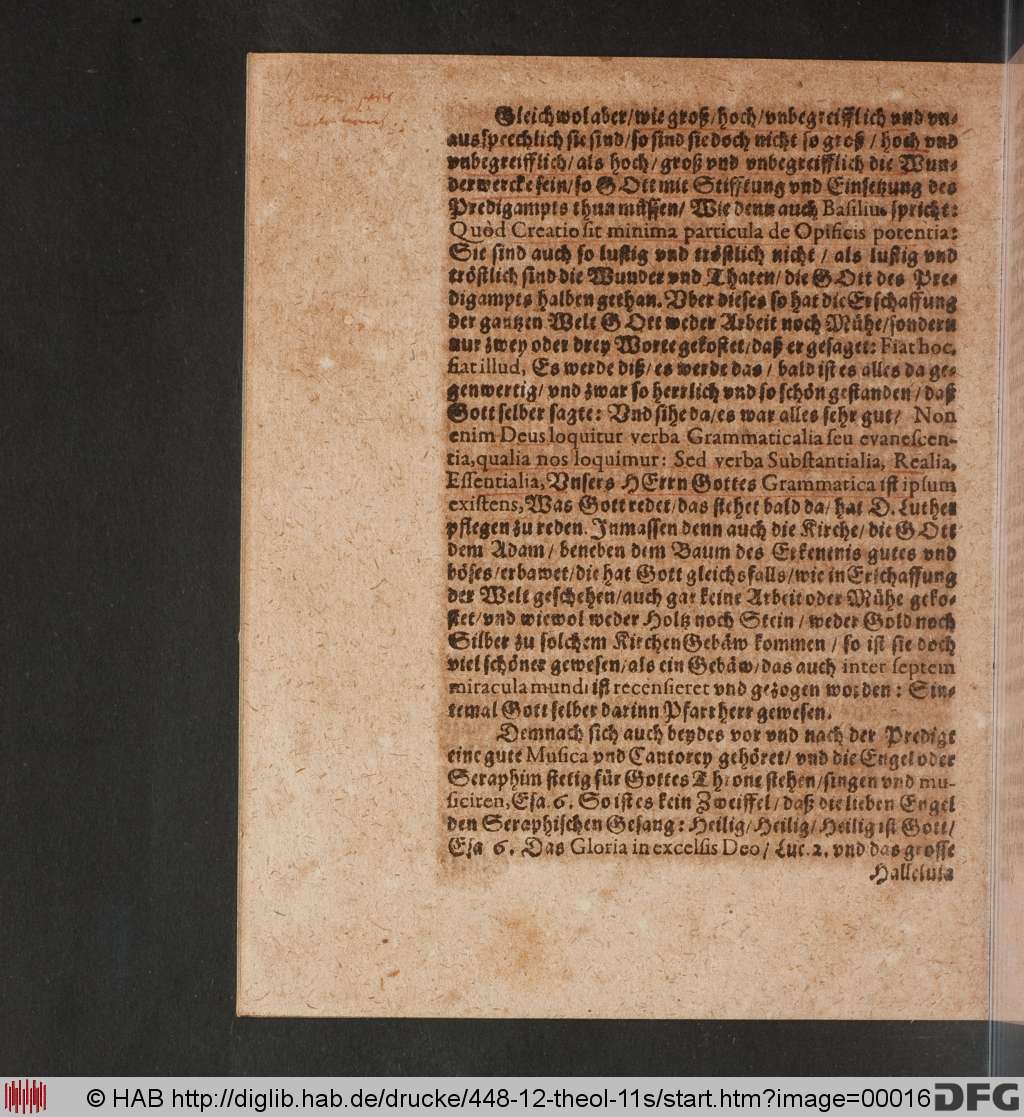 Gleichwol aber/ wie groß/ hoch/ vnbegreifflich vnd vn-
aussprechlich sie sind/ so sind sie doch nicht so groß / hoch vnd
vnbegreifflich/ als hoch/ groß vnd vnbegreifflich die Wun-
derwercke sein/ so GOtt mit Stifftung vnd Einsetzung des
Predigampts thun müssen/ Wie denn auch Basilius spricht:
Quòd Creatio sit minima particula de Opificis potentia:
Sie sind auch so lustig vnd tröstlich nicht / als lustig vnd
tröstlich sind die Wunder vnd Thaten/ die GOtt des Pre-
digampts halben gethan. Vber dieses so hat die Erschaffung
der gantzen Welt GOtt weder Arbeit noch Mühe/ sondern
nur zwey oder drey Worte gekostet/ daß er gesaget: Fiat hoc,
fiat illud, Es werde diß/ es werde das / bald ist es alles da ge-
genwertig/ vnd zwar so herrlich vnd so schön gestanden / daß
Gott selber sagte: Vnd sihe da/ es war alles sehr gut/ Non
enim Deus loquitur verba Grammaticalia seu evanescen-
tia, qualia nos loquimur: Sed verba Substantialia, Realia,
Essentialia, Vnsers HErrn Gottes Grammatica ist ipsum
existens, Was Gott redet/ das stehet bald da/ hat D. Luther
pflegen zu reden. Inmassen denn auch die Kirche/ die GOtt
dem Adam/ beneben dem Baum des Erkentnis gutes vnd
böses/ erbawet/ die hat Gott gleichsfalls/ wie in Erschaffung
der Welt geschehen/ auch gar keine Arbeit oder Mühe geko-
stet/ vnd wiewol weder Holtz noch Stein / weder Gold noch
Silber zu solchem KirchenGebäw kommen / so ist sie doch
viel schöner gewesen/ als ein Gebäw/ das auch inter septem
miracula mundi ist recensieret vnd gezogen worden: Sin-
temal Gott selber darinn Pfarrherr gewesen.
Demnach sich auch beydes vor vnd nach der Predigt
eine gute Musica vnd Cantorey gehöret/ vnd die Engel oder
Seraphim stetig für Gottes Throne stehen/ singen vnd mu-
siciren, Esa. 6. So ist es kein Zweiffel/ daß die lieben Engel
den Seraphischen Gesang: Heilig/ Heilig/ Heilig ist Gott/
Esa 6. Das Gloria in excelsis Deo/ Luc. 2. vnd das grosse
Halleluia
© HAB http://diglib.hab.de/drucke/448-12-theol-11s/start.htm?image=00016
DFG